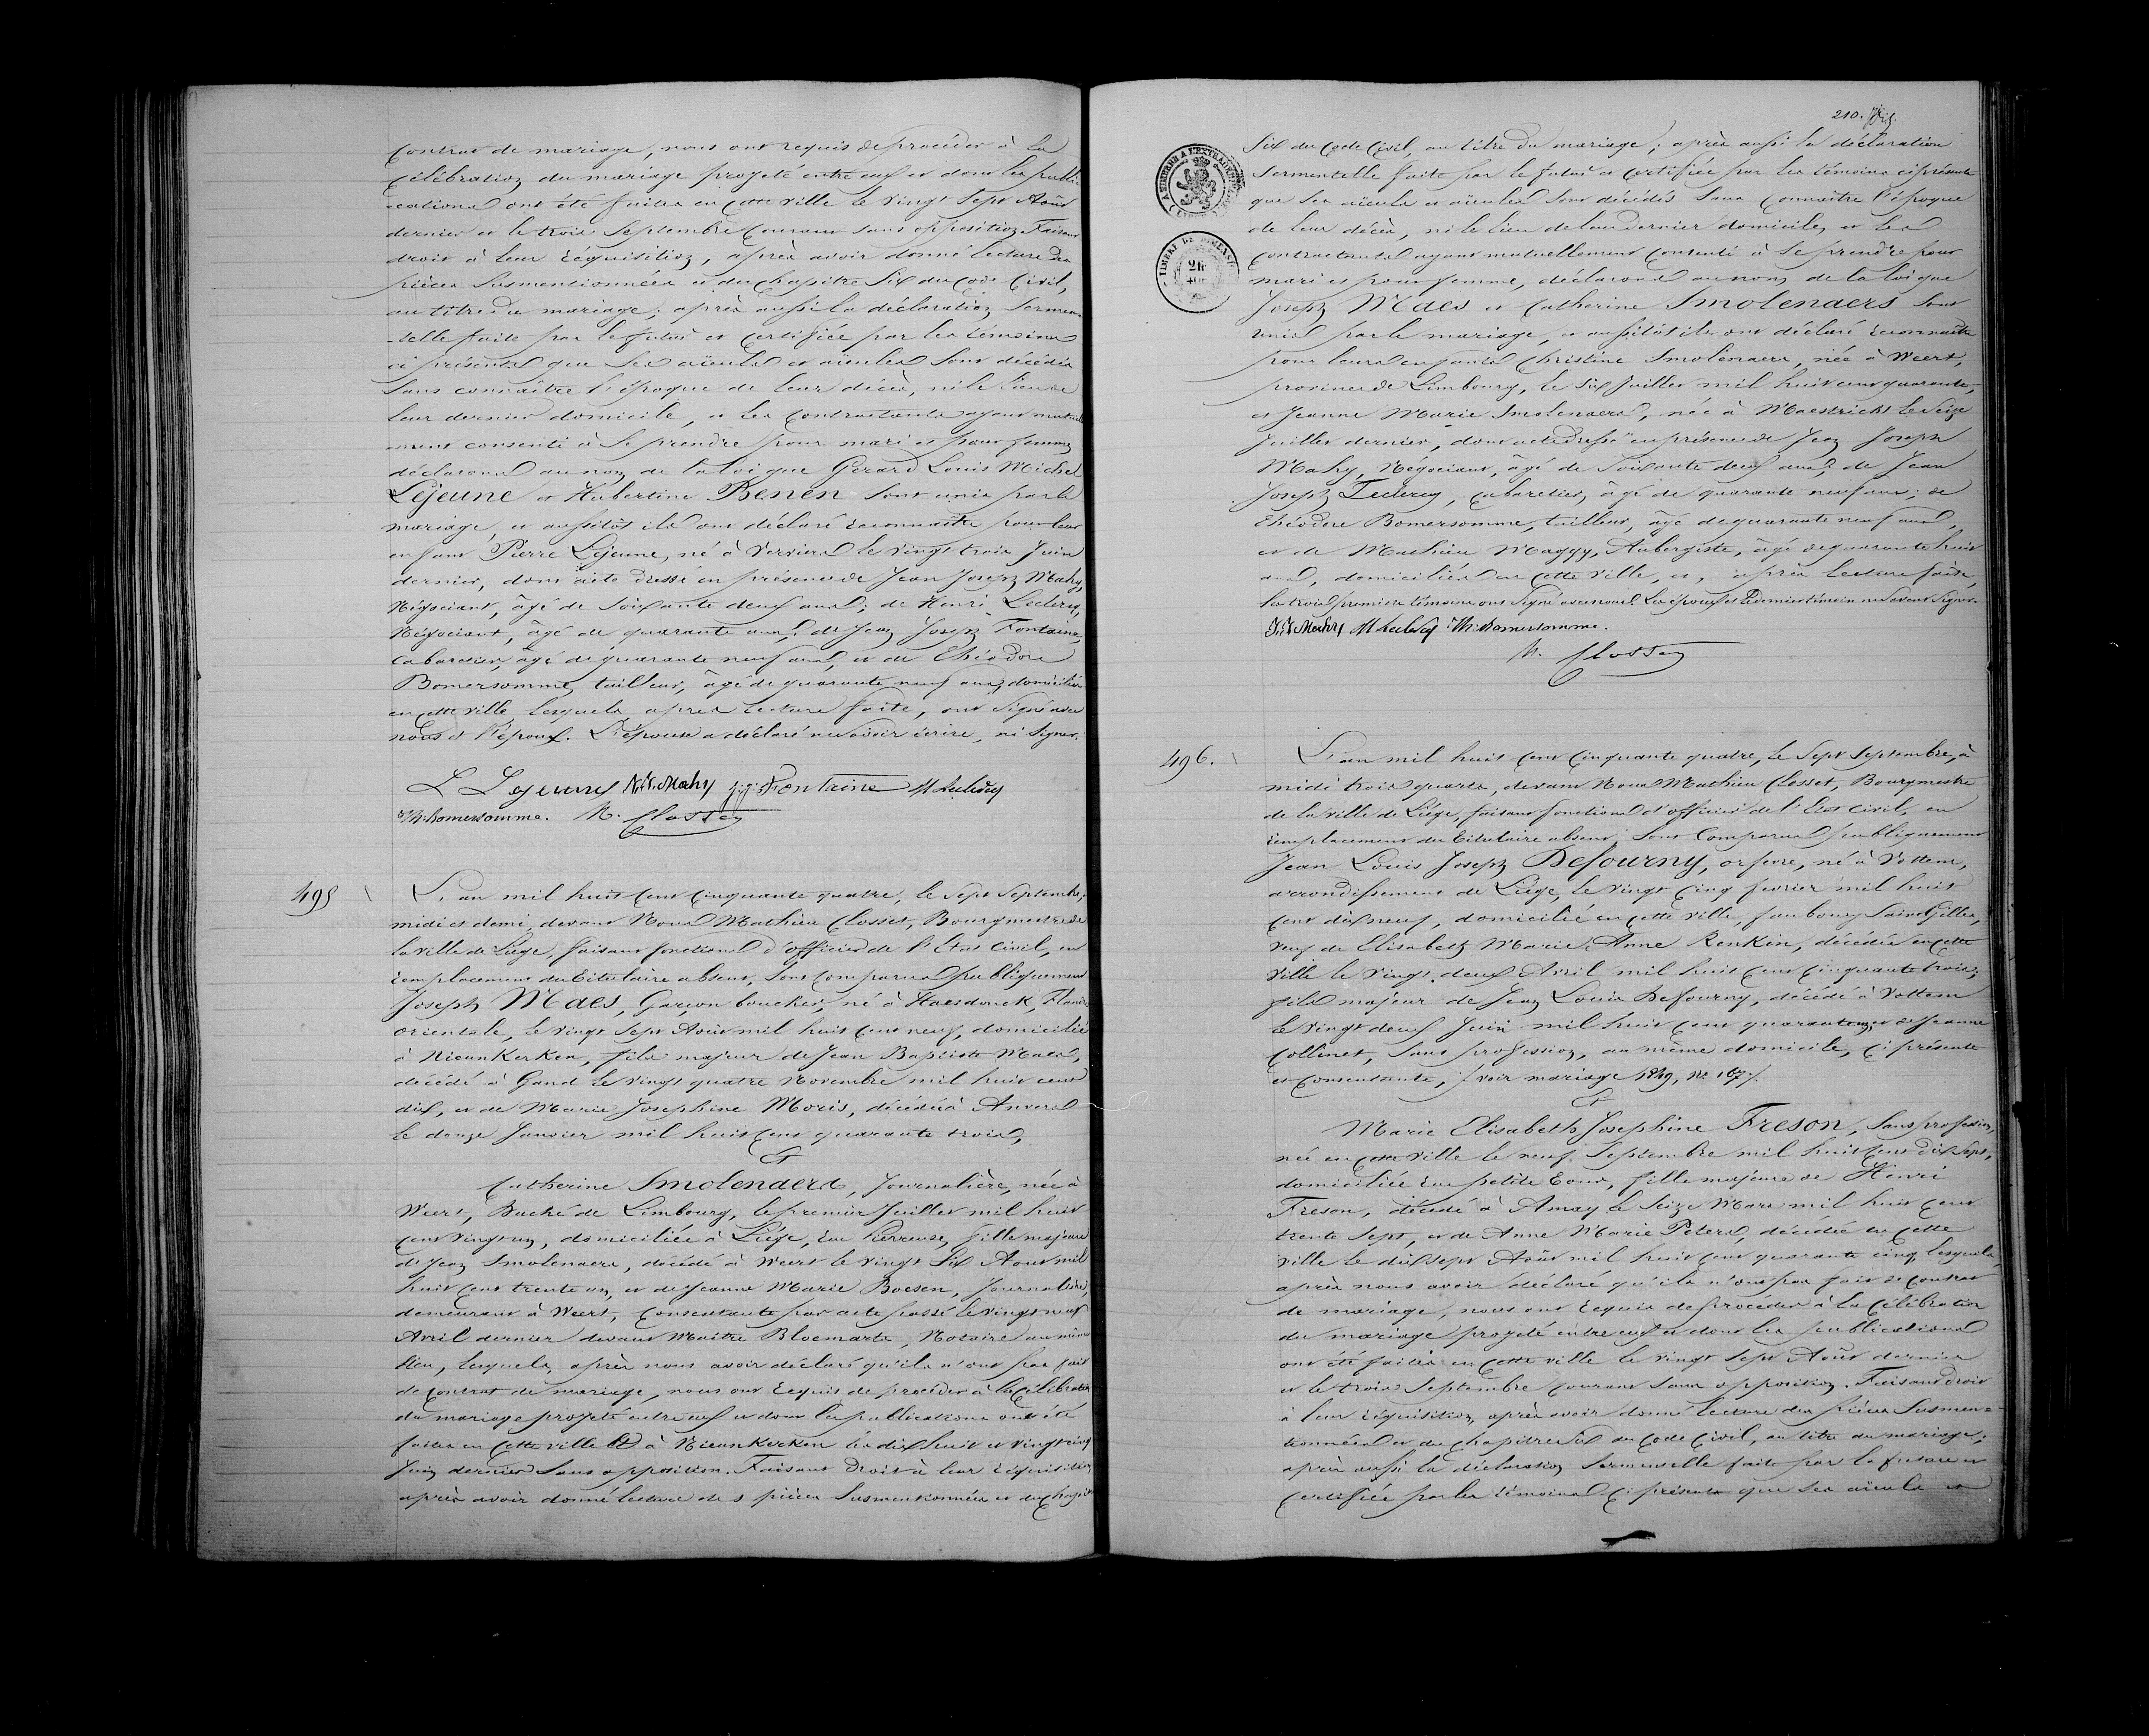 contrat de mariage, nous ont requis de procéder à la
célébration du mariage projeté entre eux et dont les publi
cations ont été faites en cette ville le vingt sept Août
dernier et le trois Septembre courant sans opposition. Faisant
droit à leur réquisition, après avoir donné lecture des
pièces susmentionnées et du chapitre Six du Code Civil,
au titre du mariage; après aussi la déclaration sermen
-telle faite par le futur et certifiée par les témoins
ci présents que ses aïeuls et aïeules sont décédés
sans connaître l'époque de leur décès, ni le lieu de
leur dernier domicile, et les contractants ayant mutuelle
ment consenti à se prendre pour mari et pour femme
déclarons au nom de la loi que Gérard Louis Michel
Lejeune et Hubertine Benen sont unis par le
mariage, et aussitôt ils ont déclaré reconnaître pour leur
enfant Pierre Lejeune, né à Verviers le vingt trois Juin
dernier, dont acte dressé en présence de Jean Joseph Mahy,
Négociant, âgé de soixante deux ans; de Henri Leclercq,
Négociant, âgé de quarante ans; de Jean Joseph Fontaine,
Cabaretier, âgé de quarante neuf ans, et de Théodore
Bomersomme, tailleur, âgé de quarante neuf ans; domiciliés
en cette ville lesquels après lecture faite, ont signé avec
nous et l'époux. L'épouse a déclaré ne savoir écrire, ni signer.
L Lejeune J.J. Mahy J.J. Fontaine H Leclercq
Th. Bomersomme. M. Closset
495 L'an mil huit cent cinquante quatre, le sept Septembre,
midi et demi, devant Nous Mathieu Closset, Bourgmestre de
la ville de Liége, faisant fonctions d'officier de l'Etat Civil, en
remplacement du titulaire absent, sont comparus publiquement
Joseph Maes, Garçon boucher, né à Haesdonck, Flandre
orientale, le vingt sept Août mil huit cent neuf, domicilié
à Nieuwkerken, fils majeur de Jean Baptiste Maes,
décédé à Gand le vingt quatre Novembre mil huit cent
dix, et de Marie Josephine Moris, décédée à Anvers
le douze Janvier mil huit cent quarante trois,
Et
Catherine Smolenaers, Journalière, née à
Weert, Duché de Limbourg, le premier Juillet mil huit
cent vingt un, domiciliée à Liége, rue Pierreuse, fille majeure
de Jean Smolenaers, décédé à Weert le vingt Six Août mil
huit cent trente un, et de Jeanne Marie Boesen, Journalière,
demeurant à Weert, consentante par acte passé le vingt neuf
Avril dernier devant Maître Bloemarts, Notaire au même
lieu, lesquels après nous avoir déclaré qu'ils n'ont pas fait
de contrat de mariage, nous ont requis de procéder à la célébration
du mariage projeté entre eux et dont les publications ont été
faites en cette ville et à Nieuwkerken les dix huit et vingt cinq
Juin dernier sans opposition. Faisant droit à leur réquisition
après avoir donné lecture des pièces susmentionnées et du chapitre
210.
Six du Code Civil, au titre du mariage; après aussi la déclaration
sermentelle faite par le futur et certifiée par les témoins ci présents
que ses aïeuls et aïeules sont décédés sans connaître l'époque
de leur décès, ni le lieu de leur dernier domicile, et les
contractants ayant mutuellement consenti à se prendre pour
mari et pour femme, déclarons au nom de la loi que
Joseph Maes et Catherine Smolenaers sont
unis par le mariage, et aussitôt ils ont déclaré reconnaître
pour leurs enfants Christine Smolenaers, née à Weert,
province de Limbourg, le six Juillet mil huit cent quarante,
et Jeanne Marie Smolenaers, née à Maestricht le Seize
Juillet dernier, dont acte dressé en présence de Jean Joseph
Mahy, Négociant, âgé de soixante deux ans; de Jean
Joseph Leclercq, cabaretier, âgé de quarante neuf ans; de
Théodore Bomersomme, tailleur, âgé de quarante neuf ans,
et de Mathieu Maggy, Aubergiste, âgé de quarante huit
ans, domiciliés en cette ville, et, après lecture faite,
les trois premiers témoins ont signé avec nous. Les époux et le dernier témoin ne savent signer.
J.J. Mahy H Leclercq Th. Bomersomme.
M. Closset
496. L'an mil huit cent cinquante quatre, le sept Septembre, à
midi trois quarts, devant Nous Mathieu Closset, Bourgmestre
de la ville de Liége, faisant fonctions d'officier de l'Etat Civil, en
remplacement du titulaire absent, sont comparus publiquement
Jean Louis Joseph Defourny, orfèvre, né à Vottem,
arrondissement de Liége, le vingt cinq février mil huit
cent dix neuf, domicilié en cette ville, faubourg Saint Gilles,
veuf de Elisabeth Marie Anne Renkin, décédée en cette
ville le vingt deux Avril mil huit cent cinquante trois;
fils majeur de Jean Louis Defourny, décédé à Vottem
le vingt deux Juin mil huit cent quarante, et de Jeanne
Collinet, sans profession, au même domicile, ci présente
et consentante; / voir mariage 1849, No 167/.
Et
Marie Elisabeth Josephine Freson, sans profession,
née en cette ville le neuf Septembre mil huit cent dix sept,
domiciliée rue petite Tour, fille majeure de Henri
Freson, décédé à Amay le seize Mars mil huit cent
trente sept, et de Anne Marie Peters, décédée en cette
ville le dix sept Août mil huit cent quarante cinq, lesquels,
après nous avoir déclaré qu'ils n'ont pas fait de contrat
de mariage, nous ont requis de procéder à la célébration
du mariage projeté entre eux et dont les publications
ont été faites en cette ville le vingt sept Août dernier
et le trois Septembre courant sans opposition. Faisant droit
à leur réquisition, après avoir donné lecture des pièces susmen=
tionnées et du chapitre Six du Code Civil, au titre du mariage;
après aussi la déclaration sermentelle faite par la future et
certifiée par les témoins ci présents que ses aïeuls et